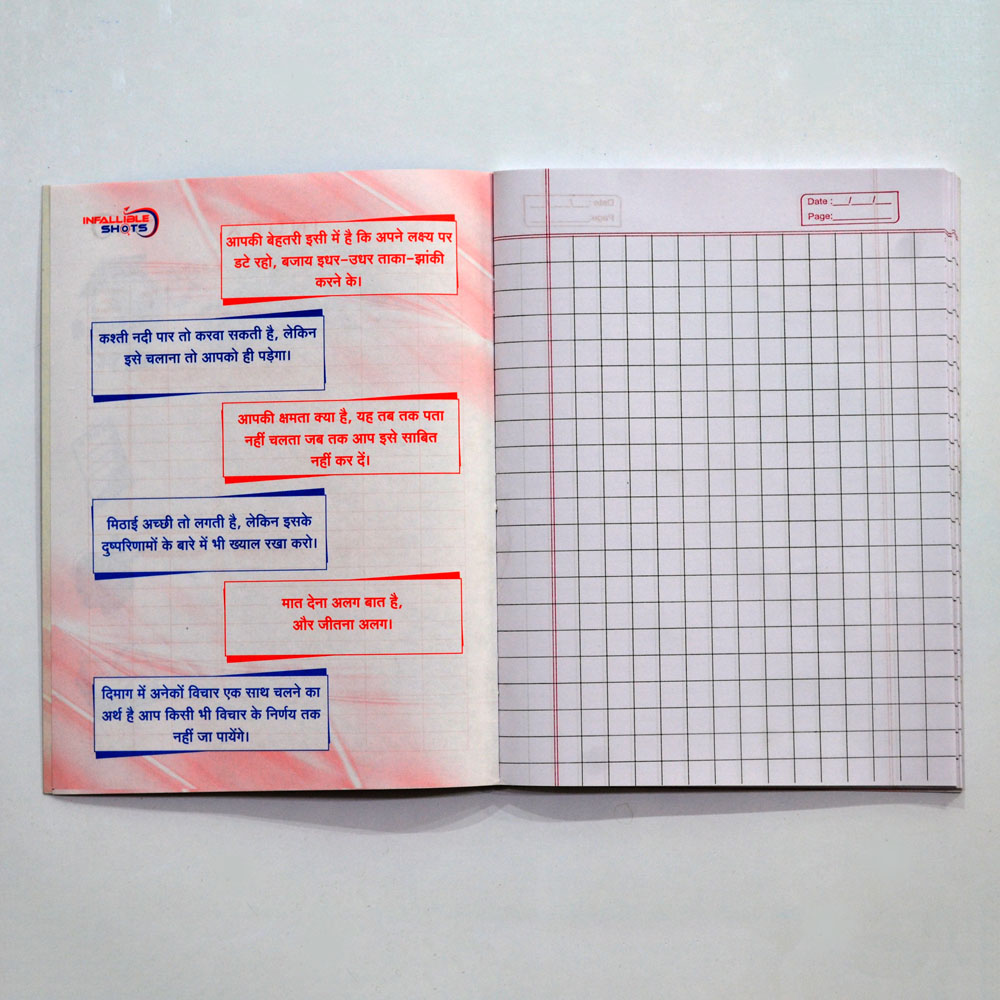 INFALLIBLE
SHOTS
आपकी बेहतरी इसी में है कि अपने लक्ष्य पर
डटे रहो, बजाय इधर-उधर ताका-झांकी
करने के।
कश्ती नदी पार तो करवा सकती है, लेकिन
इसे चलाना तो आपको ही पड़ेगा।
आपकी क्षमता क्या है, यह तब तक पता
नहीं चलता जब तक आप इसे साबित
नहीं कर दें।
मिठाई अच्छी तो लगती है, लेकिन इसके
दुष्परिणामों के बारे में भी ख्याल रखा करो।
मात देना अलग बात है,
और जीतना अलग।
दिमाग में अनेकों विचार एक साथ चलने का
अर्थ है आप किसी भी विचार के निर्णय तक
नहीं जा पायेंगे।
Date :___/___/___
Page:__________